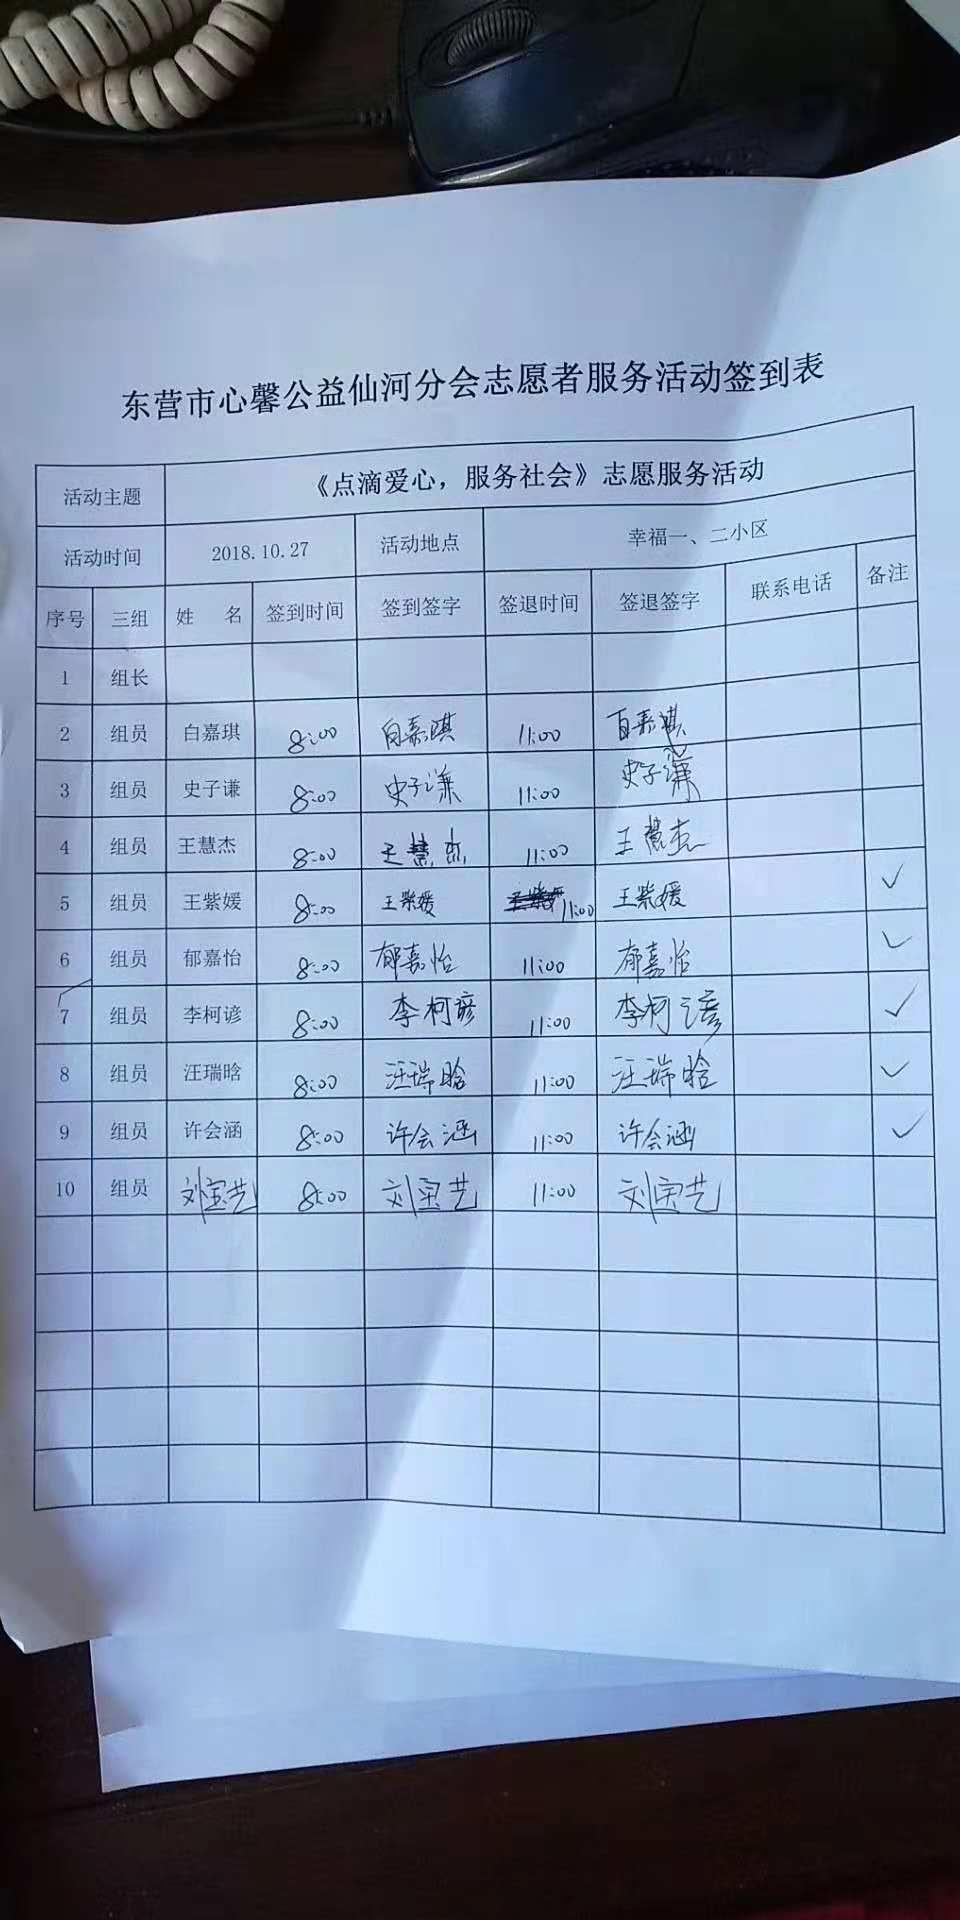 东营市心馨公益仙河分会志愿者服务活动签到表
活动主题 《点滴爱心，服务社会》志愿服务活动
活动时间 2018.10.27 活动地点 幸福一、二小区
序号 三组 姓 名 签到时间 签到签字 签退时间 签退签字 联系电话 备注
1 组长
2 组员 白嘉琪 8:00 白嘉琪 11:00 白嘉琪
3 组员 史子谦 8:00 史子谦 11:00 史子谦
4 组员 王慧杰 8:00 王慧杰 11:00 王慧杰
5 组员 王紫媛 8:00 王紫媛 11:00 王紫媛 ✓
6 组员 郁嘉怡 8:00 郁嘉怡 11:00 郁嘉怡 ✓
7 组员 李柯谚 8:00 李柯谚 11:00 李柯谚 ✓
8 组员 汪瑞晗 8:00 汪瑞晗 11:00 汪瑞晗 ✓
9 组员 许会涵 8:00 许会涵 11:00 许会涵 ✓
10 组员 刘宝艺 8:00 刘宝艺 11:00 刘宝艺